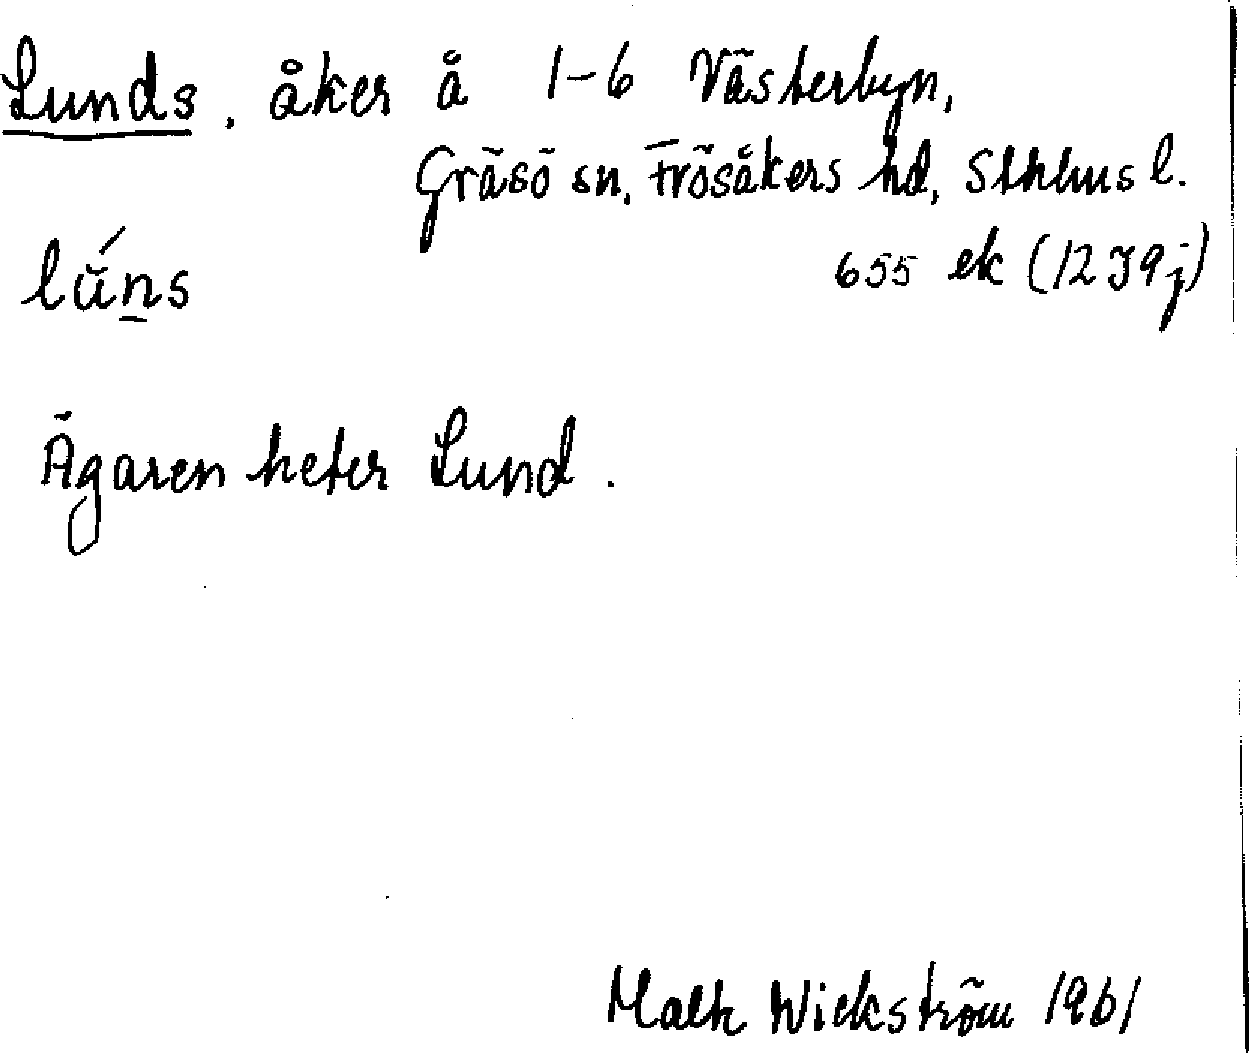 Lunds, åker å 1-6 Västerbyn,
Gräsö sn, Frösåkers hd, Sthlms l.
lŭ́n̲s 655 ek (12I9j)
Ägaren heter Lund.
Wickström 1961